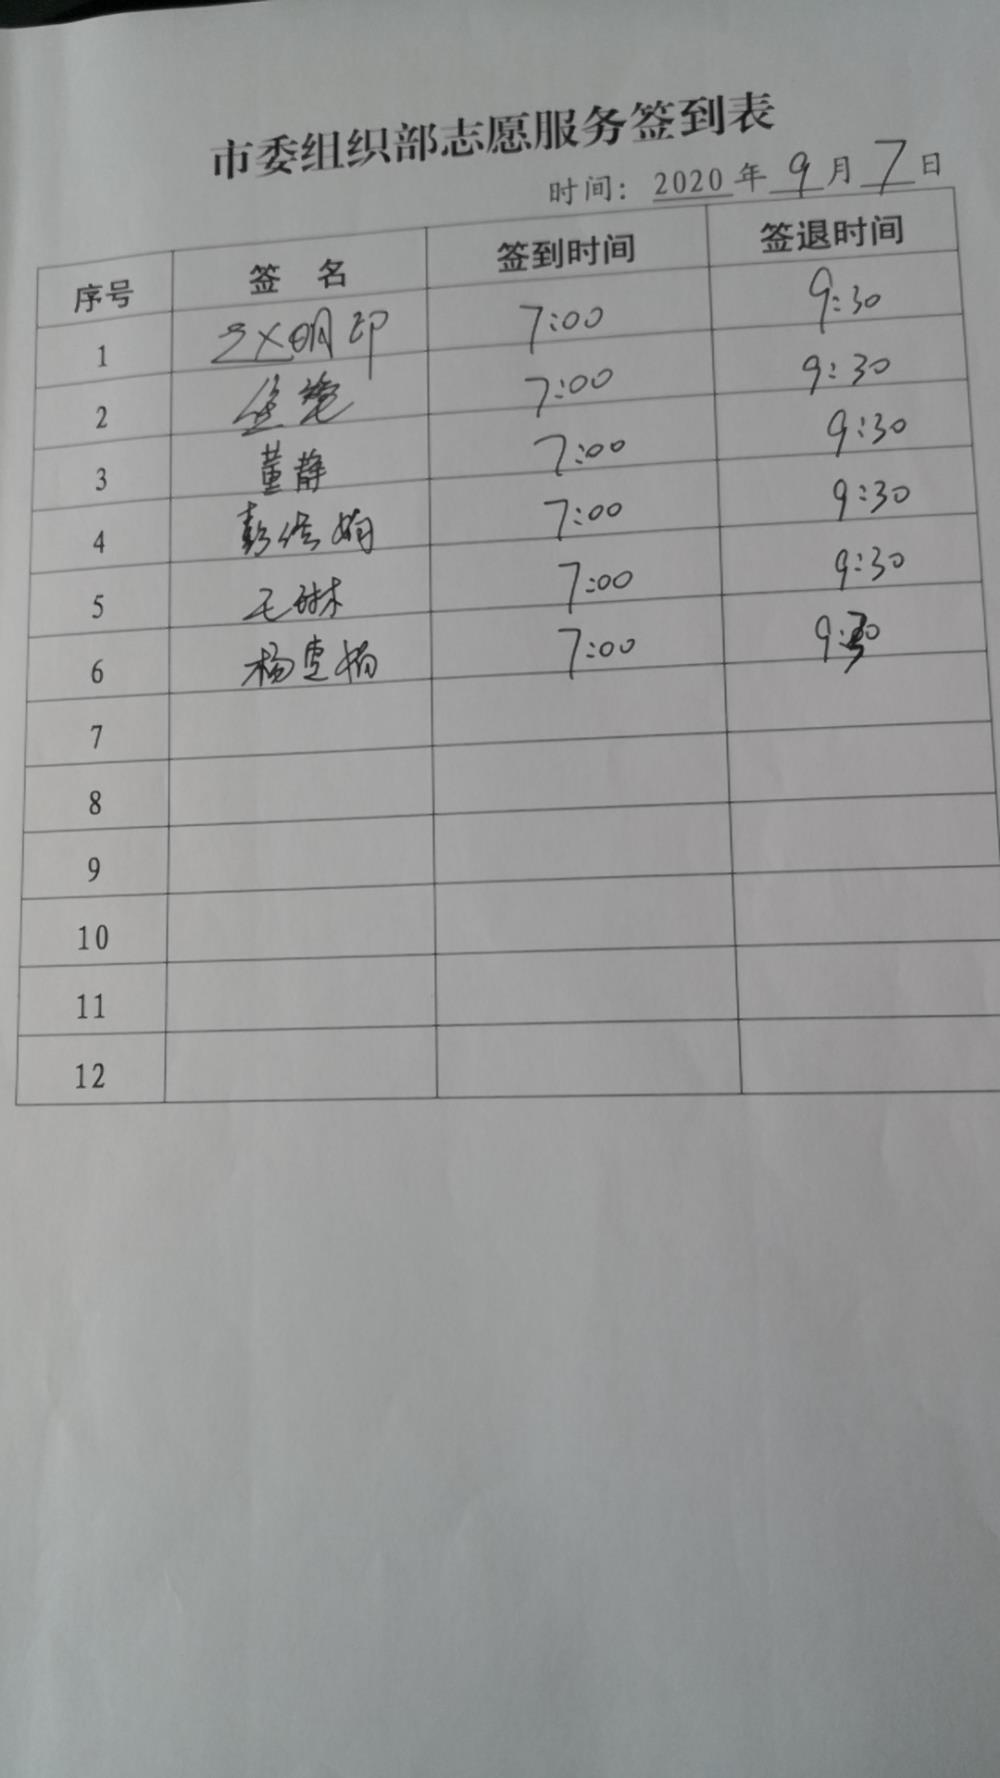 市委组织部志愿服务签到表
时间：2020年9月7日
序号 签 名 签到时间 签退时间
1 7:00 9:30
2 7:00 9:30
3 董静 7:00 9:30
4 7:00 9:30
5 7:00 9:30
6 7:00 9:30
7
8
9
10
11
12